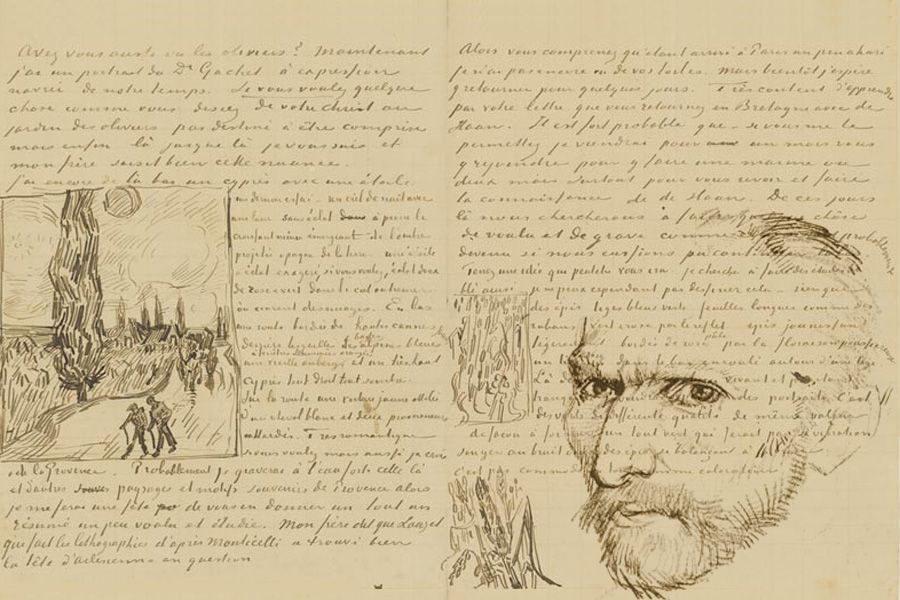 Avez vous aussi vu les oliviers? Maintenant
j'ai un portrait du Dr Gachet à expression
navrée de notre temps. Si vous voulez quelque
chose comme vous disiez de votre Christ au
jardin des oliviers pas destiné à être compris
mais enfin là jusque là je vous suis et
mon frère saisit bien cette nuance.
J'ai encore de là bas un cyprès avec une étoile
un dernier essai - un ciel de nuit avec
une lune sans éclat dans à peine le
croissant mince émergeant de l'ombre
projetée opaque de la terre - une étoile
à éclat exagéré si vous voulez, éclat doux
de rose et vert dans le ciel outremer
où courent des nuages. En bas
une route bordée de hautes cannes
derrière lesquelles les Alpines basses bleues
une vieille auberge à fenêtres illuminées orangées et un très haut
cyprès tout droit tout sombre.
Sur la route une voiture jaune attelée
d'un cheval blanc et deux promeneurs
attardés. Très romantique
si vous voulez mais aussi je crois
de la Provence. Probablement je graverai à l'eau forte celle là
et d'autres paysages et motifs souvenirs de Provence alors
je me ferai une fête de vous en donner un tout un
résumé un peu voulu et étudié. Mon frère dit que Lauzet
qui fait les lithographies d'après Monticelli a trouvé bien
la tête d'arlésienne en question
Alors vous comprenez qu'étant arrivé à Paris un peu ahuri
je n'ai pas encore vu de vos toiles. Mais bientôt j'espère
y retourner pour quelques jours. Très content d'apprendre
par votre lettre que vous retournez en Bretagne avec de
Haan. Il est fort probable que - si vous me le
permettez je viendrai pour un mois vous
y rejoindre pour y faire une marine ou
deux mais surtout pour vous revoir et faire
la connaissance de de Haan. De ces jours
là nous chercherons à faire quelque chose
de voulu et de grave comme probablement
devenu si nous eussions pu continuer
Tenez une idée qui peut-être vous ira je cherche à faire des études de
blé ainsi je ne peux cependant pas dessiner cela - rien que
des épis tiges bleues vertes feuilles longues comme des
rubans vert et rose par le reflet épis jaunissant
légèrement bordés de rose pâle par la floraison
en bas enroulé autour d'une tige
Là vivant et
des portraits
des verts de différente qualité de même valeur
de façon à former un tout vert qui ferait par sa vibration
songer au bruit doux des épis se balançant à la brise
c'est pas commode coloration